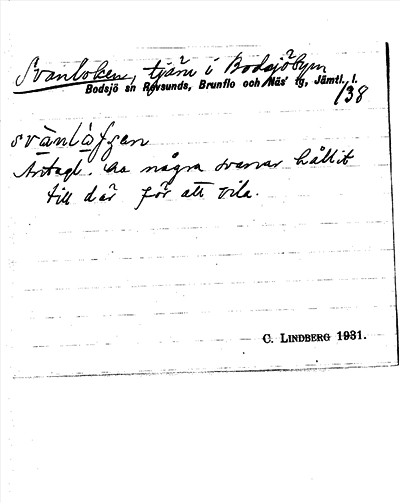 Svanloken, tjärn i Bodsjöbyn
Bodsjö sn Revsunds, Brunflo och Näs' tg, Jämtl. l.
138
svànlàfgen
Antagl. ha några svanar hållit
till där för att vila.
C. LINDBERG 1931.